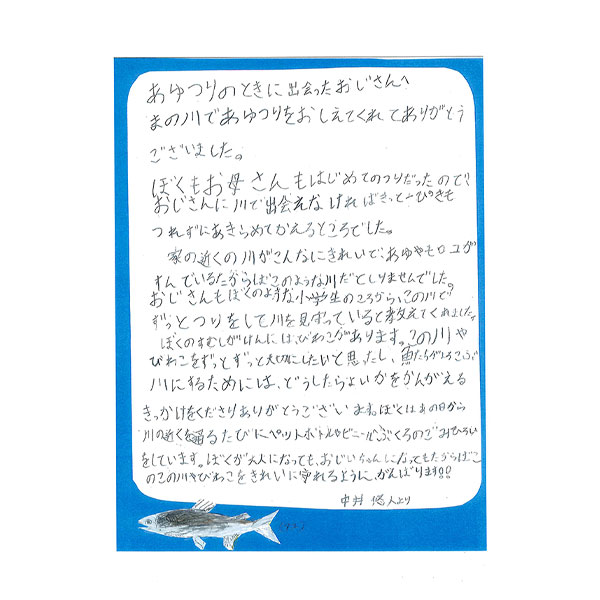 あゆつりのときに出会ったおじさんへ
まの川であゆつりをおしえてくれてありがとう
ございました。
ぼくもお母さんもはじめてのつりだったので、
おじさんに川で出会えなければきっと一ぴきも
つれずにあきらめてかえるところでした。
家の近くの川がこんなにきれいで、あゆやモロコが
すんでいるたからばこのような川だとしりませんでした。
おじさんもぼくのような小学生のころから、この川で
ずっとつりをして川を見守っていると教えてくれました。
ぼくのすむしがけんには、びわこがあります。この川や
びわこをずっとずっと大切にしたいと思ったし、魚たちがよろこぶ
川にするためには、どうしたらよいかをかんがえる
きっかけをくださりありがとうございます。ぼくはあの日から
川の近くを通るたびにペットボトルやビニールぶくろのごみひろい
をしています。ぼくが大人になっても、おじいちゃんになってもたからばこ
のこの川やびわこをきれいに守れるように、がんばります!!
中井 悠人より